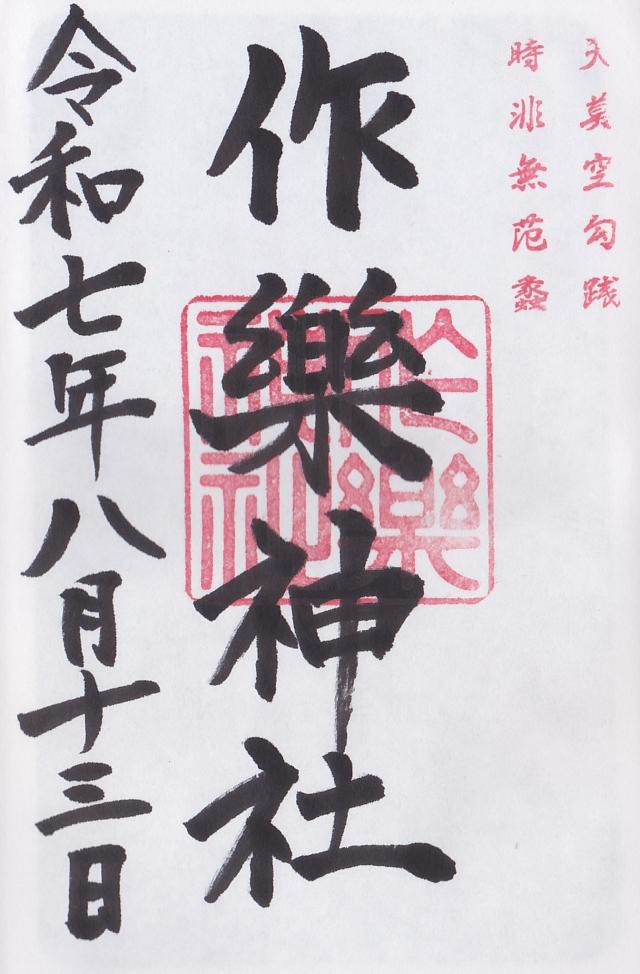 天莫空勾践
時非無范蠡
作樂神社
作樂神社
令和七年八月十三日